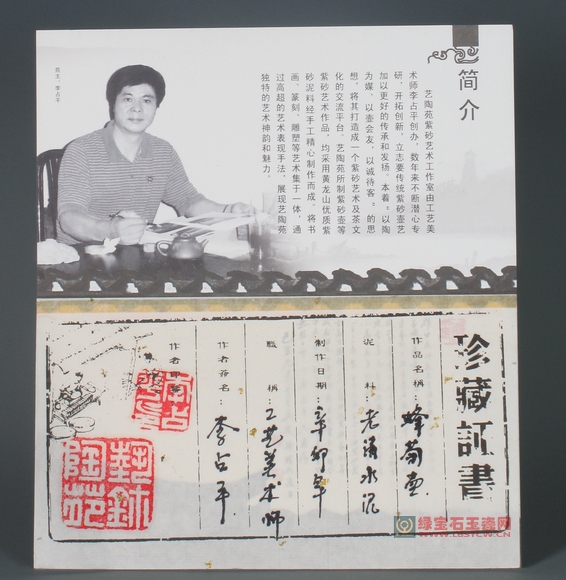 简介
艺陶苑紫砂艺术工作室由工艺美
术师李占平创办，数年来不断潜心专
研，开拓创新，立志要传统紫砂壶艺
加以更好的传承和发扬。本着“以陶
为媒，以壶会友，以诚待客”的思
想，将其打造成一个紫砂艺术及茶文
化的交流平台。艺陶苑所制紫砂壶等
紫砂艺术作品，均采用黄龙山优质紫
砂泥料经手工精心制作而成，将书
画、篆刻、雕塑等艺术集于一体，通
过高超的艺术表现手法，展现艺陶苑
独特的艺术神韵和魅力。
苑主：李占平
珍藏証書
作品名稱：蜂菊壶
泥料：老清水泥
制作日期：辛卯年
職稱：工艺美术师
作者签名：李占平
作者印章
李占平
藝術陶苑
绿宝石玉瓷网
WWW.LBSYCW.CN